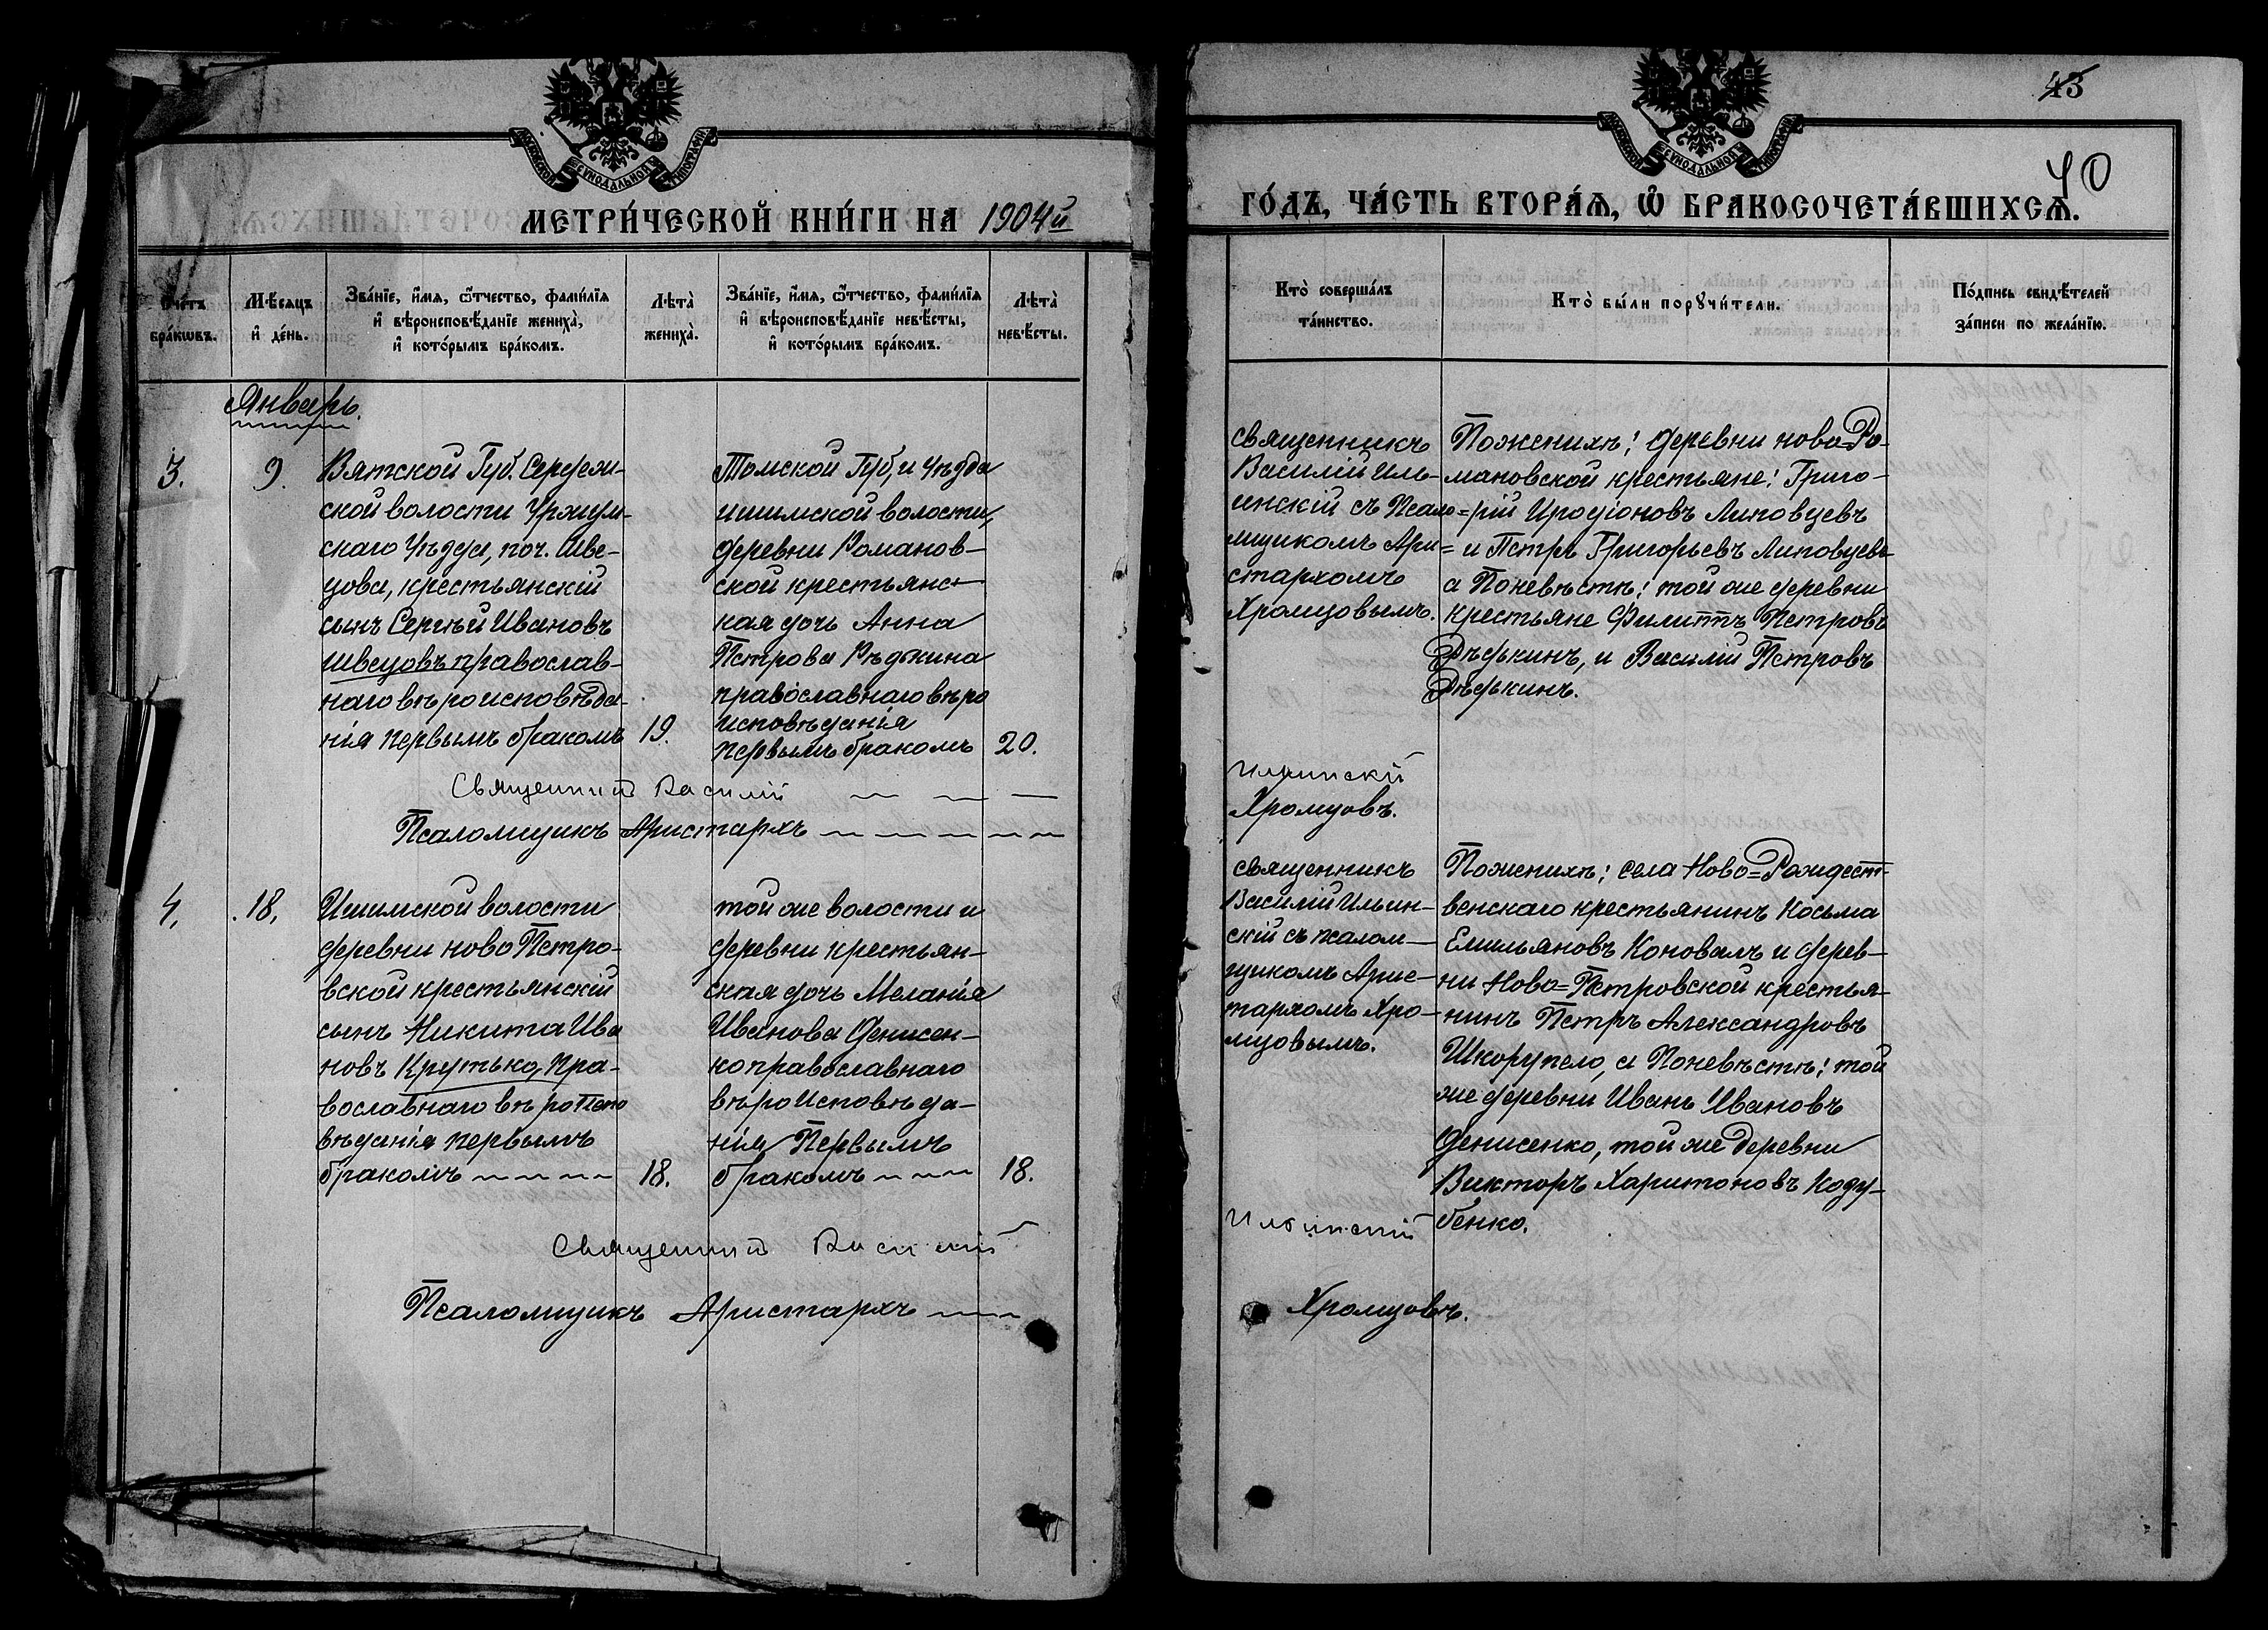 43
40
МЕТРИ́ЧЕСКОЙ КНИ́ГИ НА 1904й
ГО́ДЪ, ЧА́СТЬ ВТОРА́Ѧ, Ѽ БРАКОСОЧЕТА́ВШИХСѦ.
Сче́тъ бра́кѡвъ.
Мѣ́сѧцъ и҆ де́нь.
Зва́нїе, и҆́мѧ, ѻ҆́тчество, фами́лїѧ
и҆ вѣроисповѣ́данїе жениха̀,
и҆ кото́рымъ бра́комъ.
Лѣта̀
жениха̀.
Зва́нїе, и҆́мѧ, ѻ҆́тчество, фами́лїѧ
и҆ вѣроисповѣ́данїе невѣ́сты,
и҆ кото́рымъ бра́комъ.
Лѣта̀
невѣ́сты.
Кто̀ соверша́лъ
та́инство.
Кто̀ бы́ли порꙋчи́тели.
По́дпись свидѣ́телей
за́писи по жела́нїю.
Январь.
3.
9.
Вятской Губ. Сердеж-
ской волости Уржум-
скаго Уѣзда, поч. Шве-
цова, крестьянскій
сынъ Сергѣй Ивановъ
Швецовъ православ-
наго вѣроисповѣда-
нія первымъ бракомъ
19.
Томской Губ, и Уѣзда
ишимской волости,
деревни Романов-
ской крестьянс-
кая дочь Анна
Петрова Рѣдкина
православнаго вѣро
исповѣданія
первымъ бракомъ
20.
священникъ
Василій Иль-
инскій съ Псало=
мщикомъ Ари=
стархомъ
Хромцовымъ.
По женихѣ: деревни ново=Ро-
мановской крестьяне: Григо-
рій Иродіоновъ Липовцевъ
и Петръ Григорьевъ Липовцевъ
а По невѣстѣ: той же деревни
крестьяне Филиппъ Петровъ
Рѣдькинъ, и Василій Петровъ
Рѣдькинъ.
Священник Василій
Ильинскій
Псаломщикъ Аристархъ
Хромцовъ.
4.
18.
Ишимской волости
деревни ново Петро-
вской крестьянскій
сынъ Никита Ива
новъ Крутько, пра-
вославнаго вѣроиспо
вѣданія первымъ
бракомъ
18.
той же волости и
деревни крестьян-
ская дочь Меланія
Иванова Денисен-
ко православнаго
вѣроисповѣда-
нія Первымъ
бракомъ
18.
священникъ
Василій Ильин-
скій съ псалом-
щикомъ Арис-
тархомъ Хро-
мцовымъ.
По женихѣ: села Ново=Рождест-
венскаго крестьянинъ Косьма
Емельяновъ Коновалъ и дерев-
ни Ново=Петровской крестья-
нинъ Петръ Александровъ
Шкорупело, а По невѣстѣ: той
же деревни Иванъ Ивановъ
Денисенко, той же деревни
Викторъ Харитоновъ Коду-
бенко.
Священник Василий
Ильинский
Псаломщикъ Аристархъ
Хромцовъ.